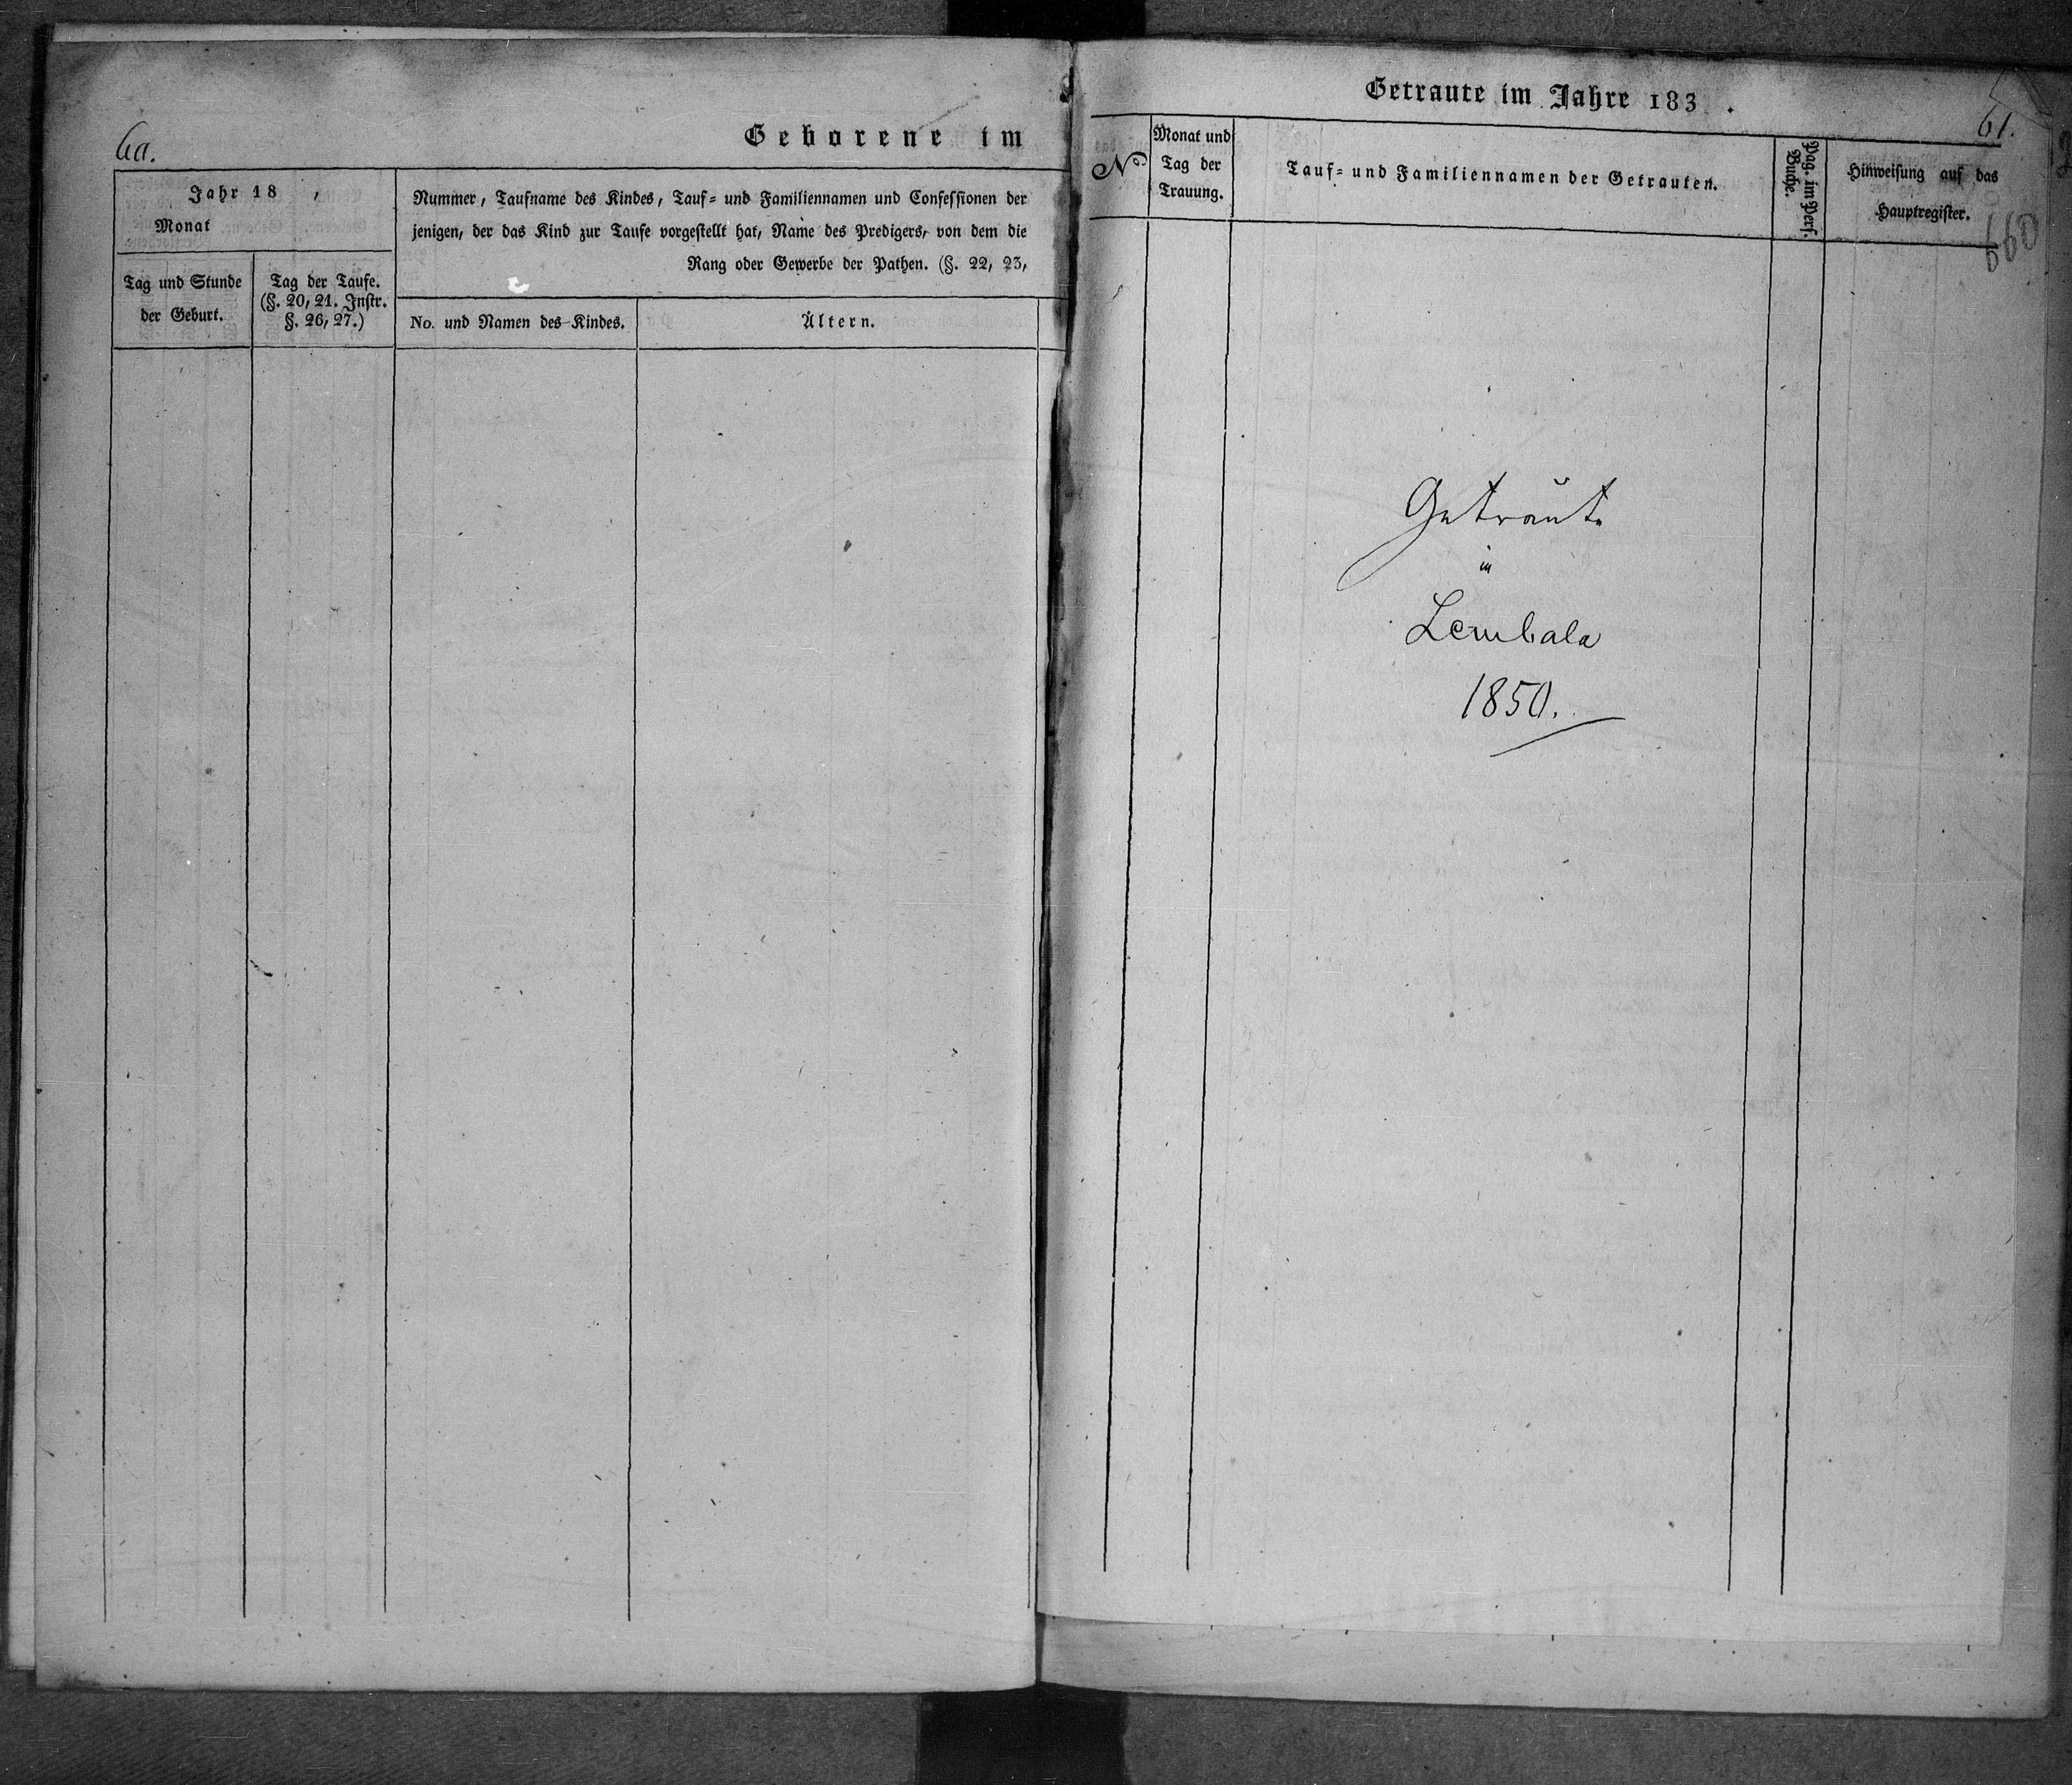 60.
Geborene im
Jahr 18 ,
Monat
Tag und Stunde
der Geburt.
Tag der Taufe.
(§. 20, 21. Instr.
§. 26, 27.)
Nummer, Taufname des Kindes, Tauf= und Familiennamen und Confessionen der
jenigen, der das Kind zur Taufe vorgestellt hat, Name des Predigers, von dem die
Rang oder Gewerbe der Pathen. (§. 22, 23,
No. und Namen des Kindes.
Ältern.
Getraute im Jahre 183 .
61.
No
Monat und
Tag der
Trauung.
Tauf= und Familiennamen der Getrauten.
Pag. im Pers.
Buche.
Hinweisung auf das
Hauptregister.
660
Getraute
in
Lembala
1850.